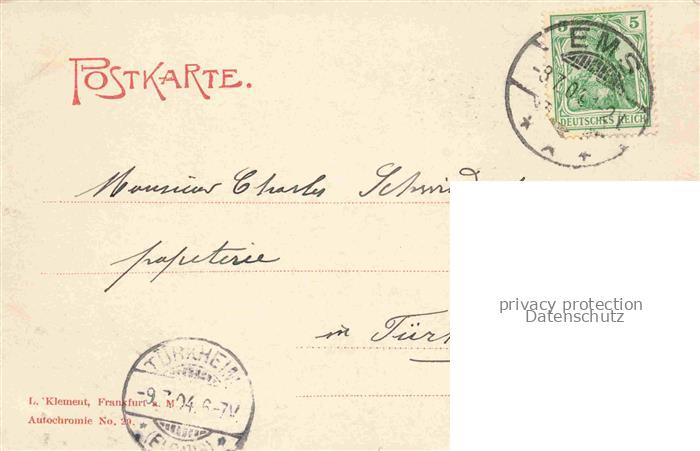 POSTKARTE.
5 5
DEUTSCHES REICH
EMS
-8.7.04
Monsieur Charles
papeterie
in Türk
privacy protection
Datenschutz
TÜRKHEIM
-9.7.04. 6-7V.
(ELSASS)
L. Klement, Frankfurt a. M
Autochromie No. 29.